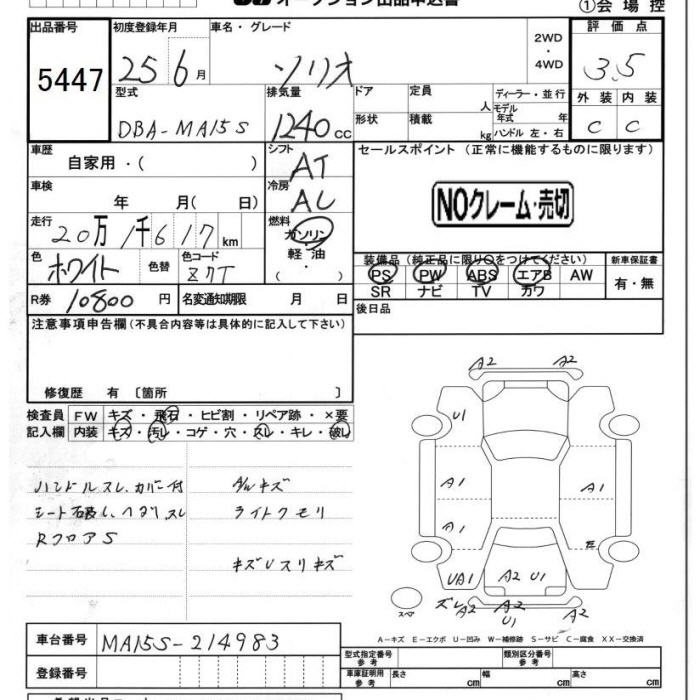 オークション出品申込書
①会場控
出品番号 5447
初度登録年月 25 6月
車名・グレード ソリオ
2WD・4WD
評価点 3.5
型式 DBA-MA15S
排気量 1240cc
ドア 形状
定員 人 積載 kg
ディーラー・並行
モデル年式 年
ハンドル 左・右
外装 C 内装 C
車歴 自家用・( )
シフト AT
セールスポイント (正常に機能するものに限ります)
車検 年 月( 日)
冷房 AC
NOクレーム・売切
走行 20万1千617km
燃料 ガソリン・軽油・( )
色 ホワイト 色替 色コード Z7T
装備品(純正品に限り○をつけてください)
新車保証書
PS PW ABS エアB AW
SR ナビ TV カワ
有・無
R券 10800円 名変通知期限 月 日
後日品
注意事項申告欄(不具合内容等は具体的に記入して下さい)
修復歴 有 〔箇所 〕
検査員記入欄
FW キズ・飛石・ヒビ割・リペア跡・×要
内装 キズ・汚レ・コゲ・穴・スレ・キレ・破レ
ハンドルスレ、カバー付
シート破レ、ヘタリ、スレ
RフロアS
ダルキズ
ライトクモリ
キズUスリキズ
A2 A2
U1
A1 A1
A1
UA1 A2 U1
ズレ A2 A2 A2
U1
スペア
A-キズ E-エクボ U-凹み W-補修跡 S-サビ C-腐食 XX-交換済
車台番号 MA15S-214983
登録番号
型式指定番号 参考
類別区分番号 参考
車庫証明用 参考 長さ cm 幅 cm 高さ cm